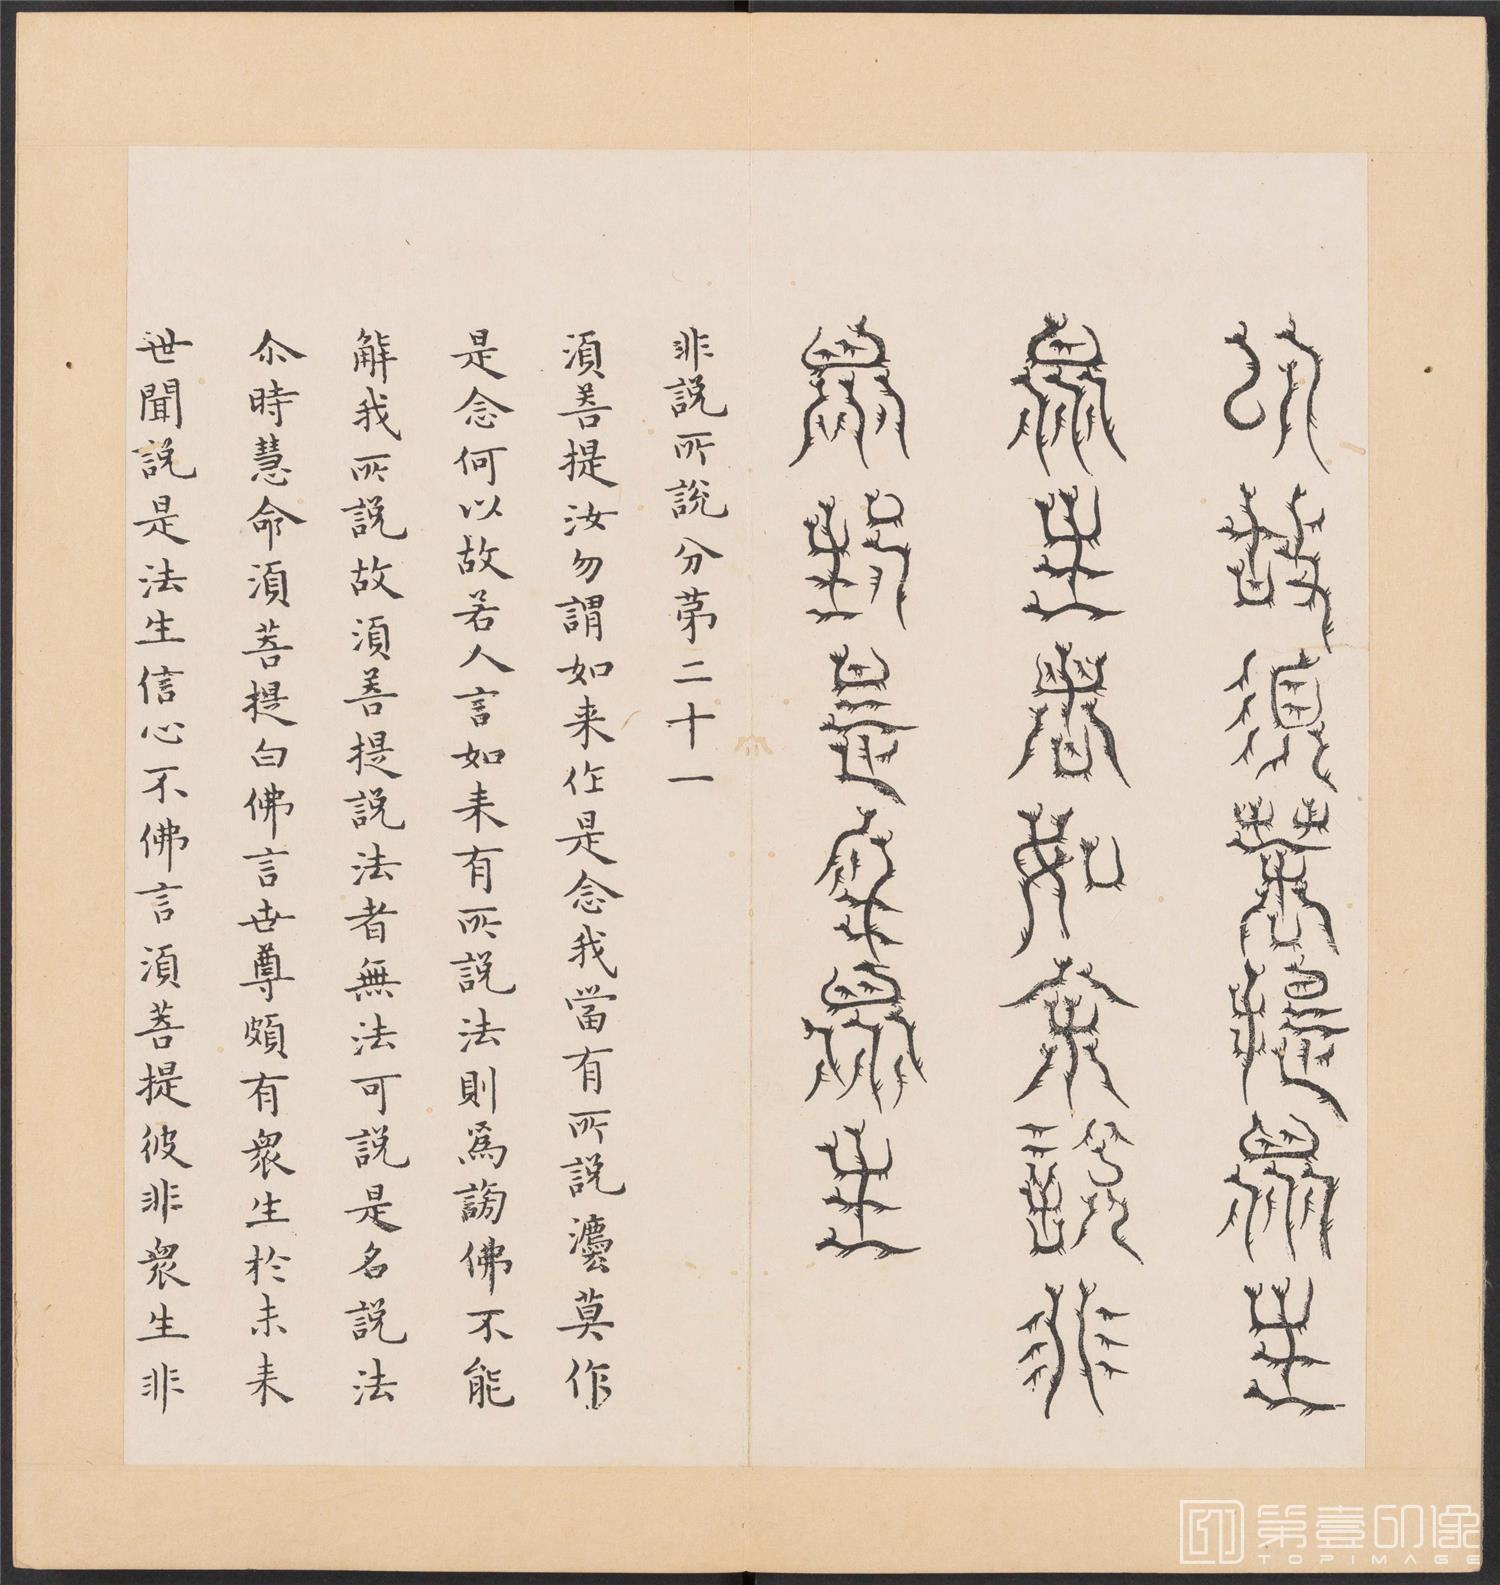 以故須菩提衆生
衆生者如来說非
衆生是名衆生
非說所說分第二十一
須菩提汝勿謂如来作是念我當有所說灋莫作
是念何以故若人言如来有所說法則爲謗佛不能
解我所說故須菩提說法者無法可說是名說法
尒時慧命須菩提白佛言世尊頗有衆生於未来
世聞說是法生信心不佛言須菩提彼非衆生非
第壹印像
TOPIMAGE